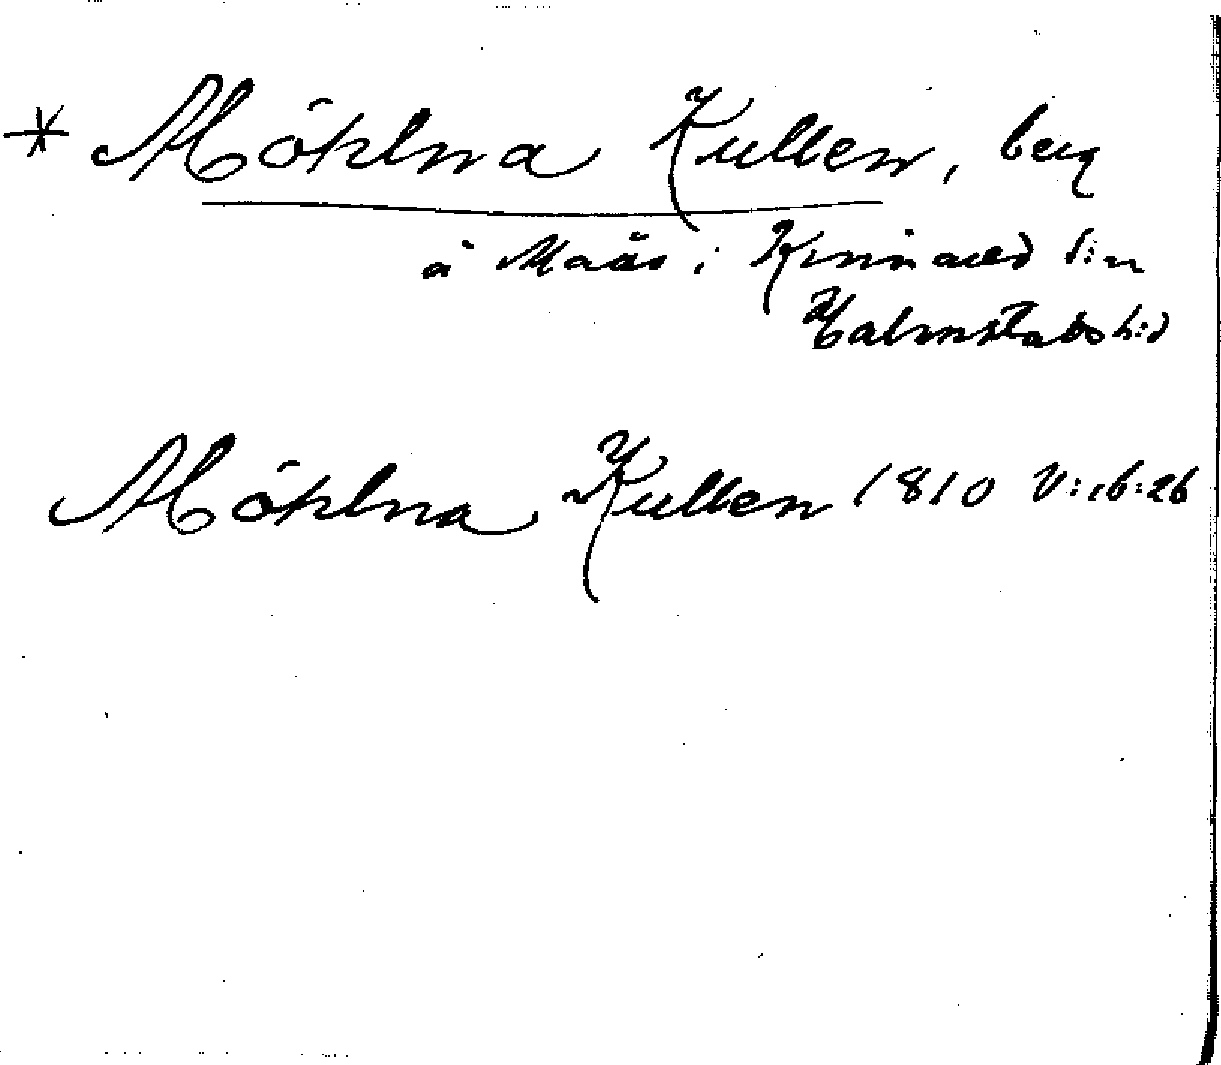 * Möhlna Kullen, berg
å Maås i Kinnared s:n
Halmstads h:d
Möhlna Kullen 1810 V:16:26